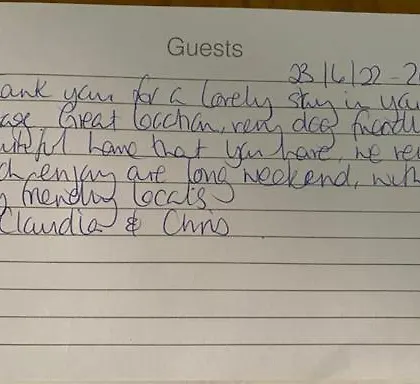 Guests
23/6/22 - 2
ank you for a lovely stay in you
Great location, very dog friendly
utiful home that you have, we re
ch enjoy are long weekend, with
friendly locals
Claudia & Chris